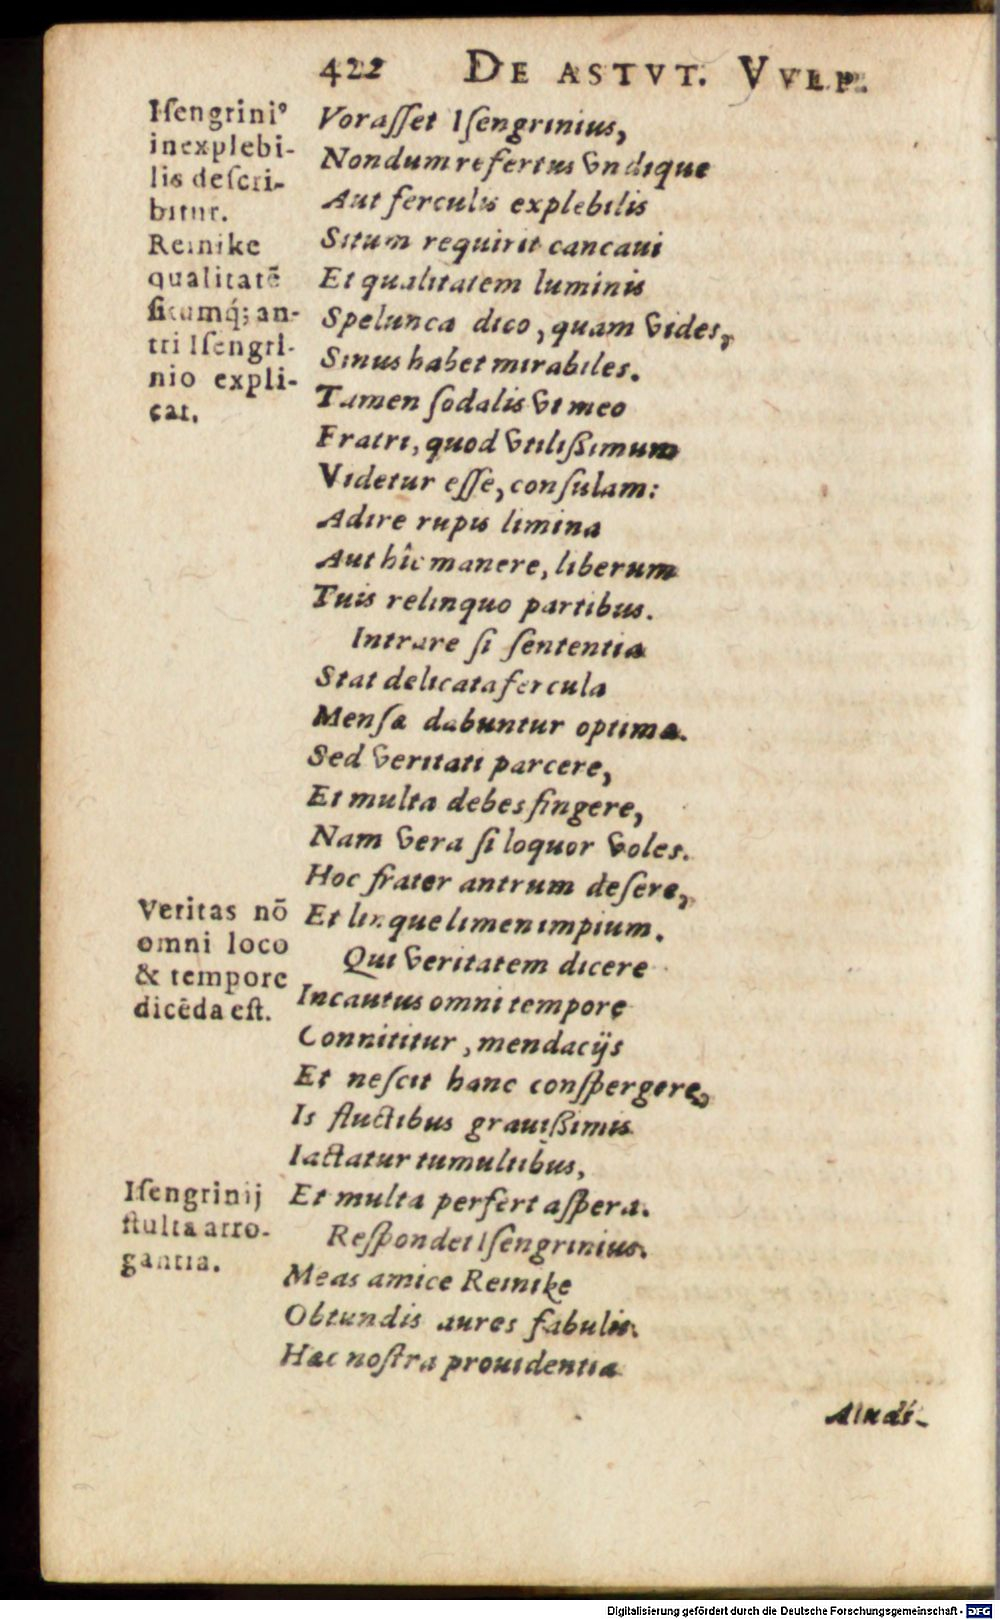 422 DE ASTVT. VVLP.
Iſengrini⁹
inexplebi-
lis deſcri-
bitur.
Reinike
qualitatē
ſitumq́; an-
tri Iſengri-
nio expli-
cat.
Voraſſet Iſengrinius,
Nondum refertus vndique
Aut ferculis explebilis
Situm requirit cancaui
Et qualitatem luminis
Spelunca dico, quam vides,
Sinus habet mirabiles.
Tamen ſodalis vt meo
Fratri, quod vtilißimum
Videtur eſſe, conſulam:
Adire rupis limina
Aut hîc manere, liberum
Tuis relinquo partibus.
Intrare ſi ſententia
Stat delicata fercula
Menſa dabuntur optima.
Sed veritati parcere,
Et multa debes fingere,
Nam vera ſi loquor voles.
Hoc frater antrum deſere,
Veritas nō
omni loco
& tempore
dicēda eſt.
Et linque limen impium.
Qui veritatem dicere
Incautus omni tempore
Connititur, mendacijs
Et neſcit hanc conſpergere,
Is fluctibus grauißimis
Iactatur tumultibus,
Iſengrinij
ſtulta arro-
gantia.
Et multa perfert aſpera.
Reſpondet Iſengrinius.
Meas amice Reinike
Obtundis aures fabulis.
Hac noſtra prouidentia
Audi-
Digitalisierung gefördert durch die Deutsche Forschungsgemeinschaft - DFG